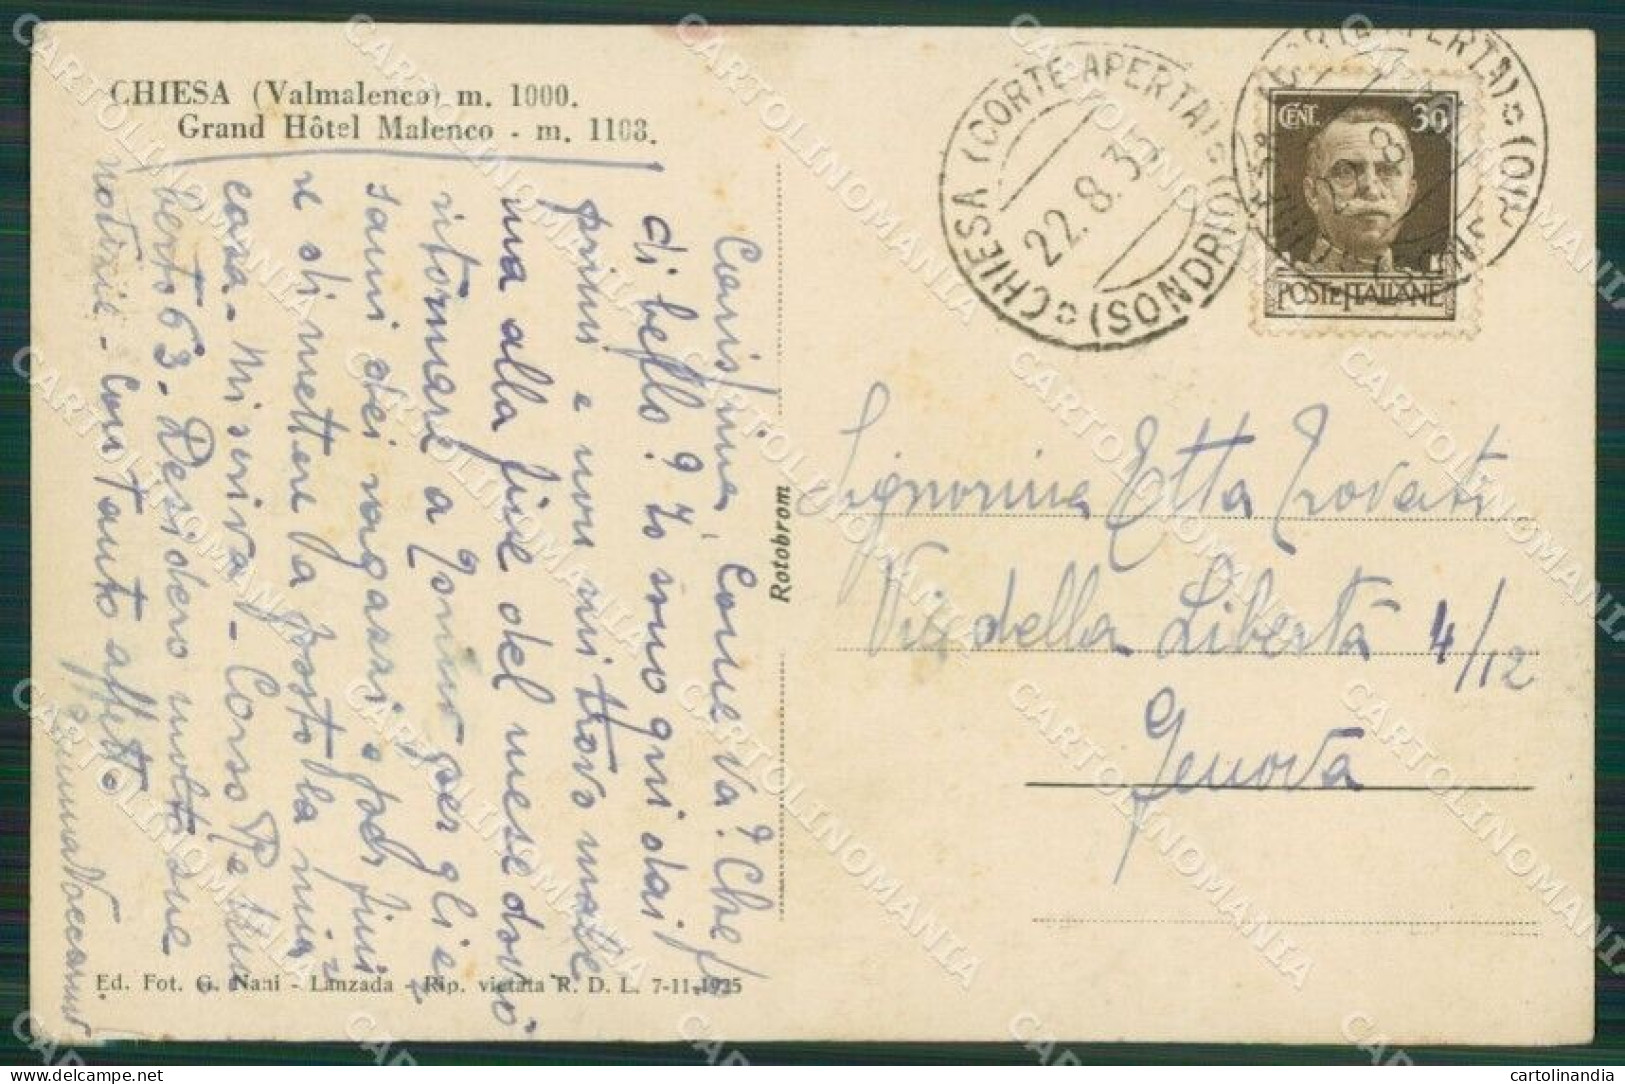 CHIESA (Valmalenco) m. 1000.
Grand Hôtel Malenco - m. 1108.
Carissima, Come va? Che fa
di bello? Io sono qui dai
primi e non mi trovo male
ma alla fine del mese dovrò
ritornare a Torino per gli e-
sami dei ragazzi, e per fini-
re di mettere la posto la mia
casa - Mi scriva - Corso Re Um-
berto 63. Desidero molto sue
notizie - Con tanto affetto
Ed. Fot. G. Nani - Lanzada - Rip. vietata R. D. L. 7-11-1925
Rotobrom
CHIESA (CORTE APERTA)
22.8.35
(SONDRIO)
CENT. 30
POSTE ITALIANE
Signorina Etta Trovati
Via della Libertà 4/12
Genova
CARTOLINOMANIA
delcampe.net
cartolinandia